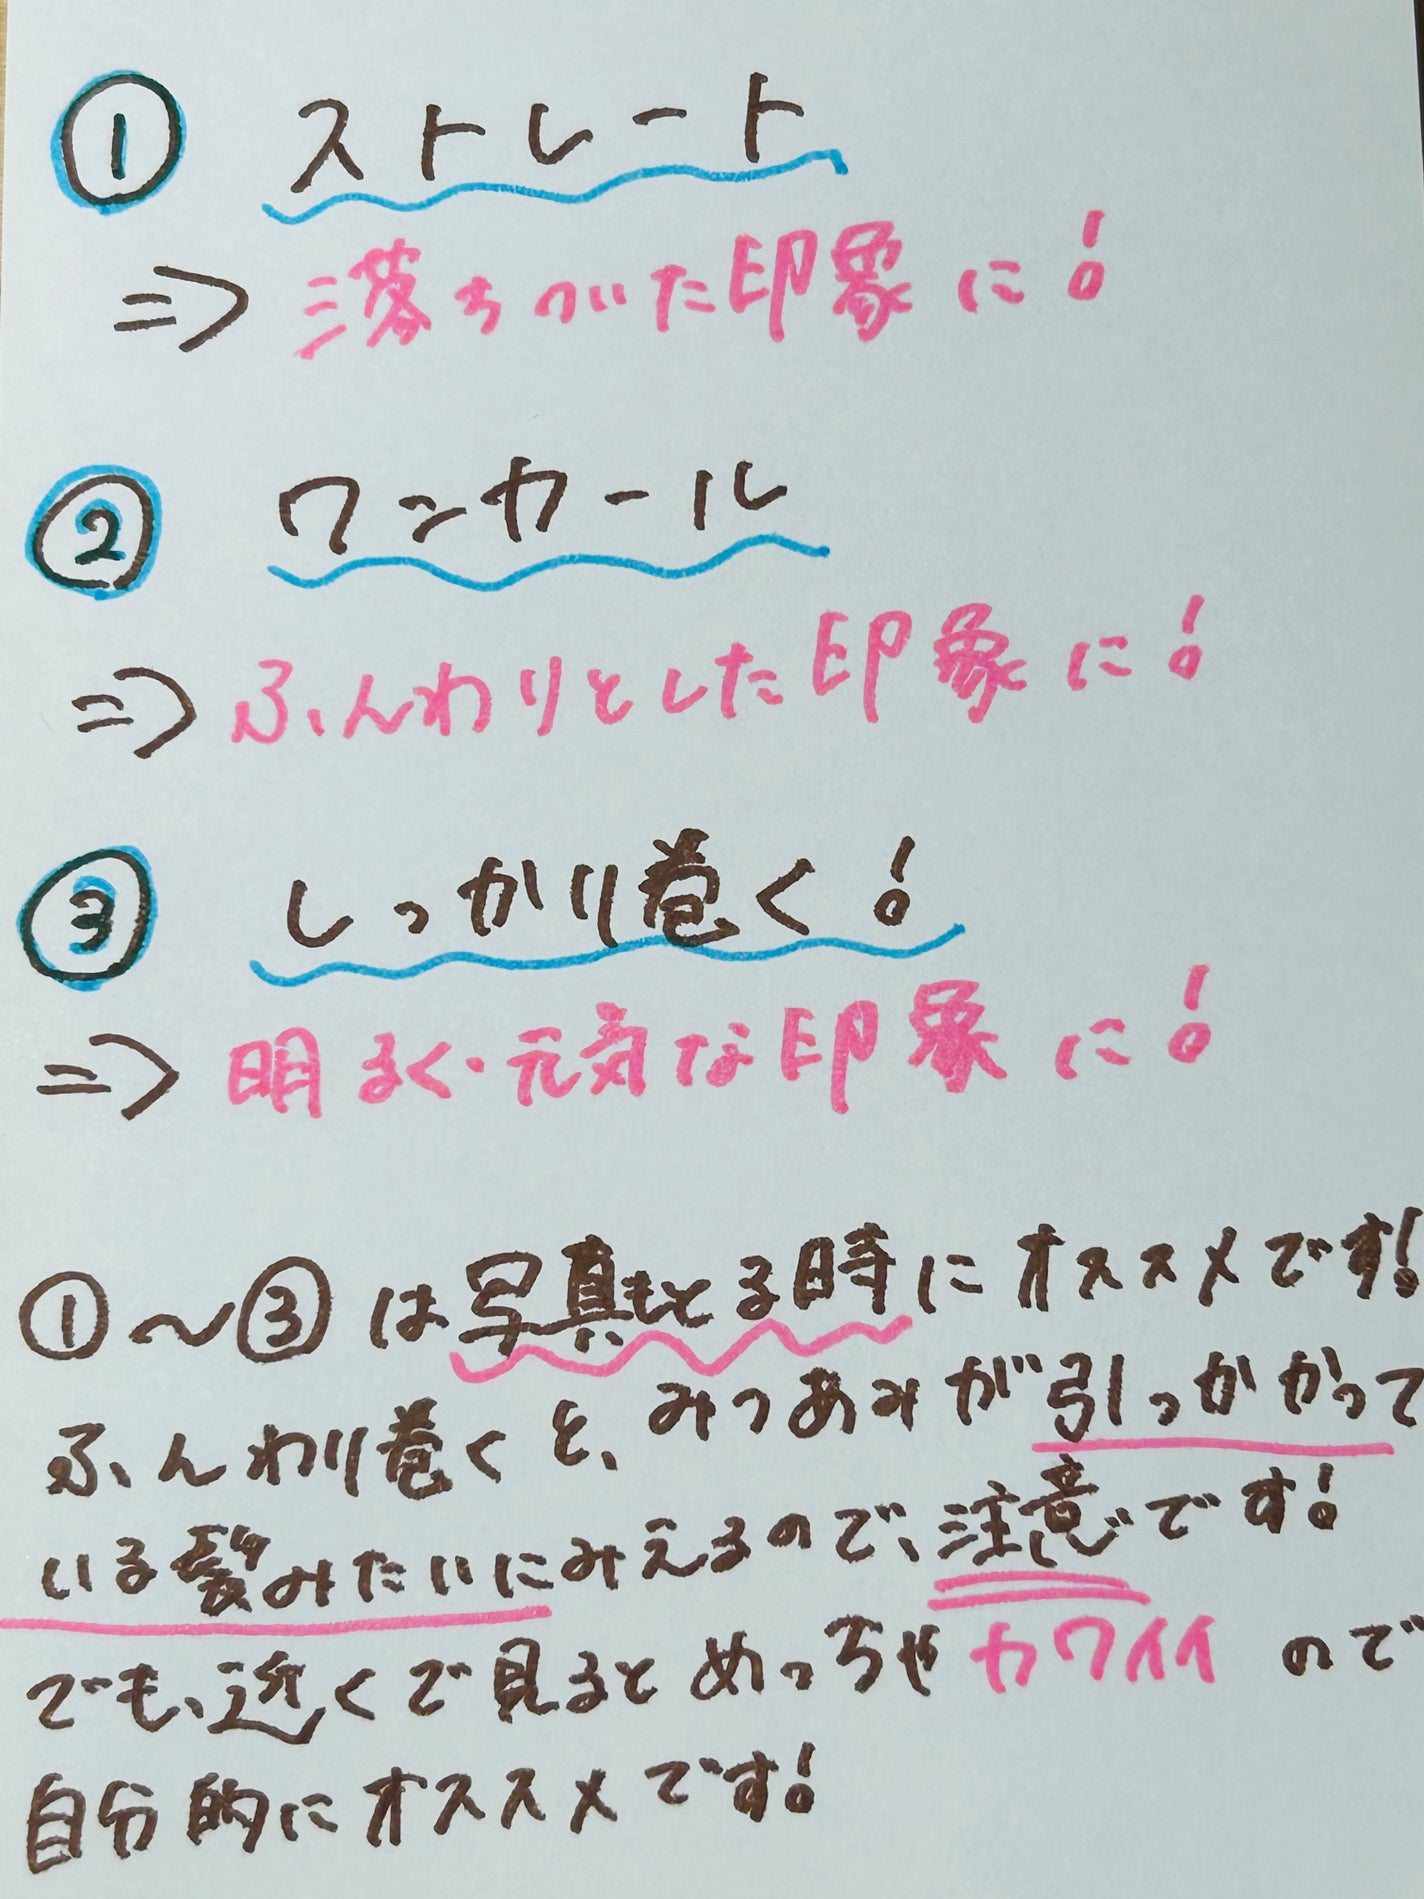 ① ストレート
⇒ 落ちついた印象に!
② ワンカール
⇒ ふんわりとした印象に!
③ しっかり巻く!
⇒ 明るく・元気な印象に!
①〜③は写真をとる時にオススメです!
ふんわり巻くと、みつあみが引っかかって
いる髪みたいにみえるので、注意です!
でも、近くで見るとめっちゃカワイイので
自分的にオススメです!